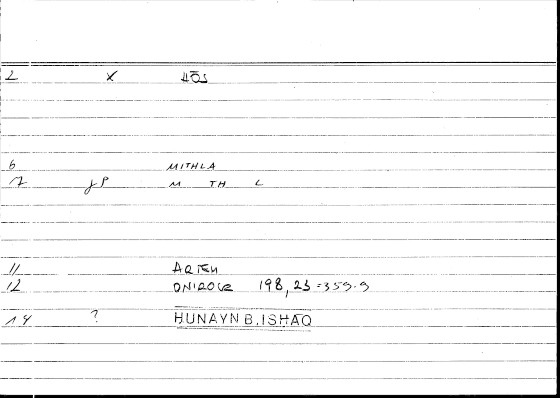 2 X ὡς
6 MITHLA
17 gP M TH L
11 ARTEM
12 ONIROCR 198,23 = 359.9
14 ? HUNAYN B. ISHAQ